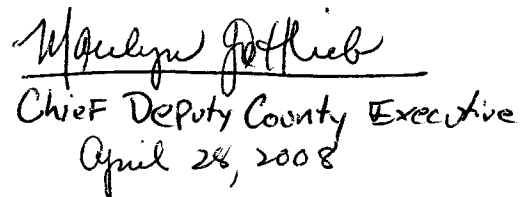 Marilyn Gottlieb
Chief Deputy County Executive
April 28, 2008